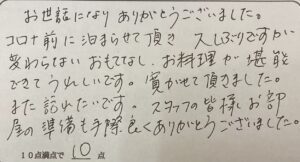 お世話になり ありがとうございました。
コロナ前に泊まらせて頂き 久しぶりですが
変わらない おもてなし、お料理が 堪能
できてうれしいです。寛がせて頂きました。
また訪れたいです。スタッフの皆様、お部
屋の準備も手際良くありがとうございました。
10点満点で 10 点